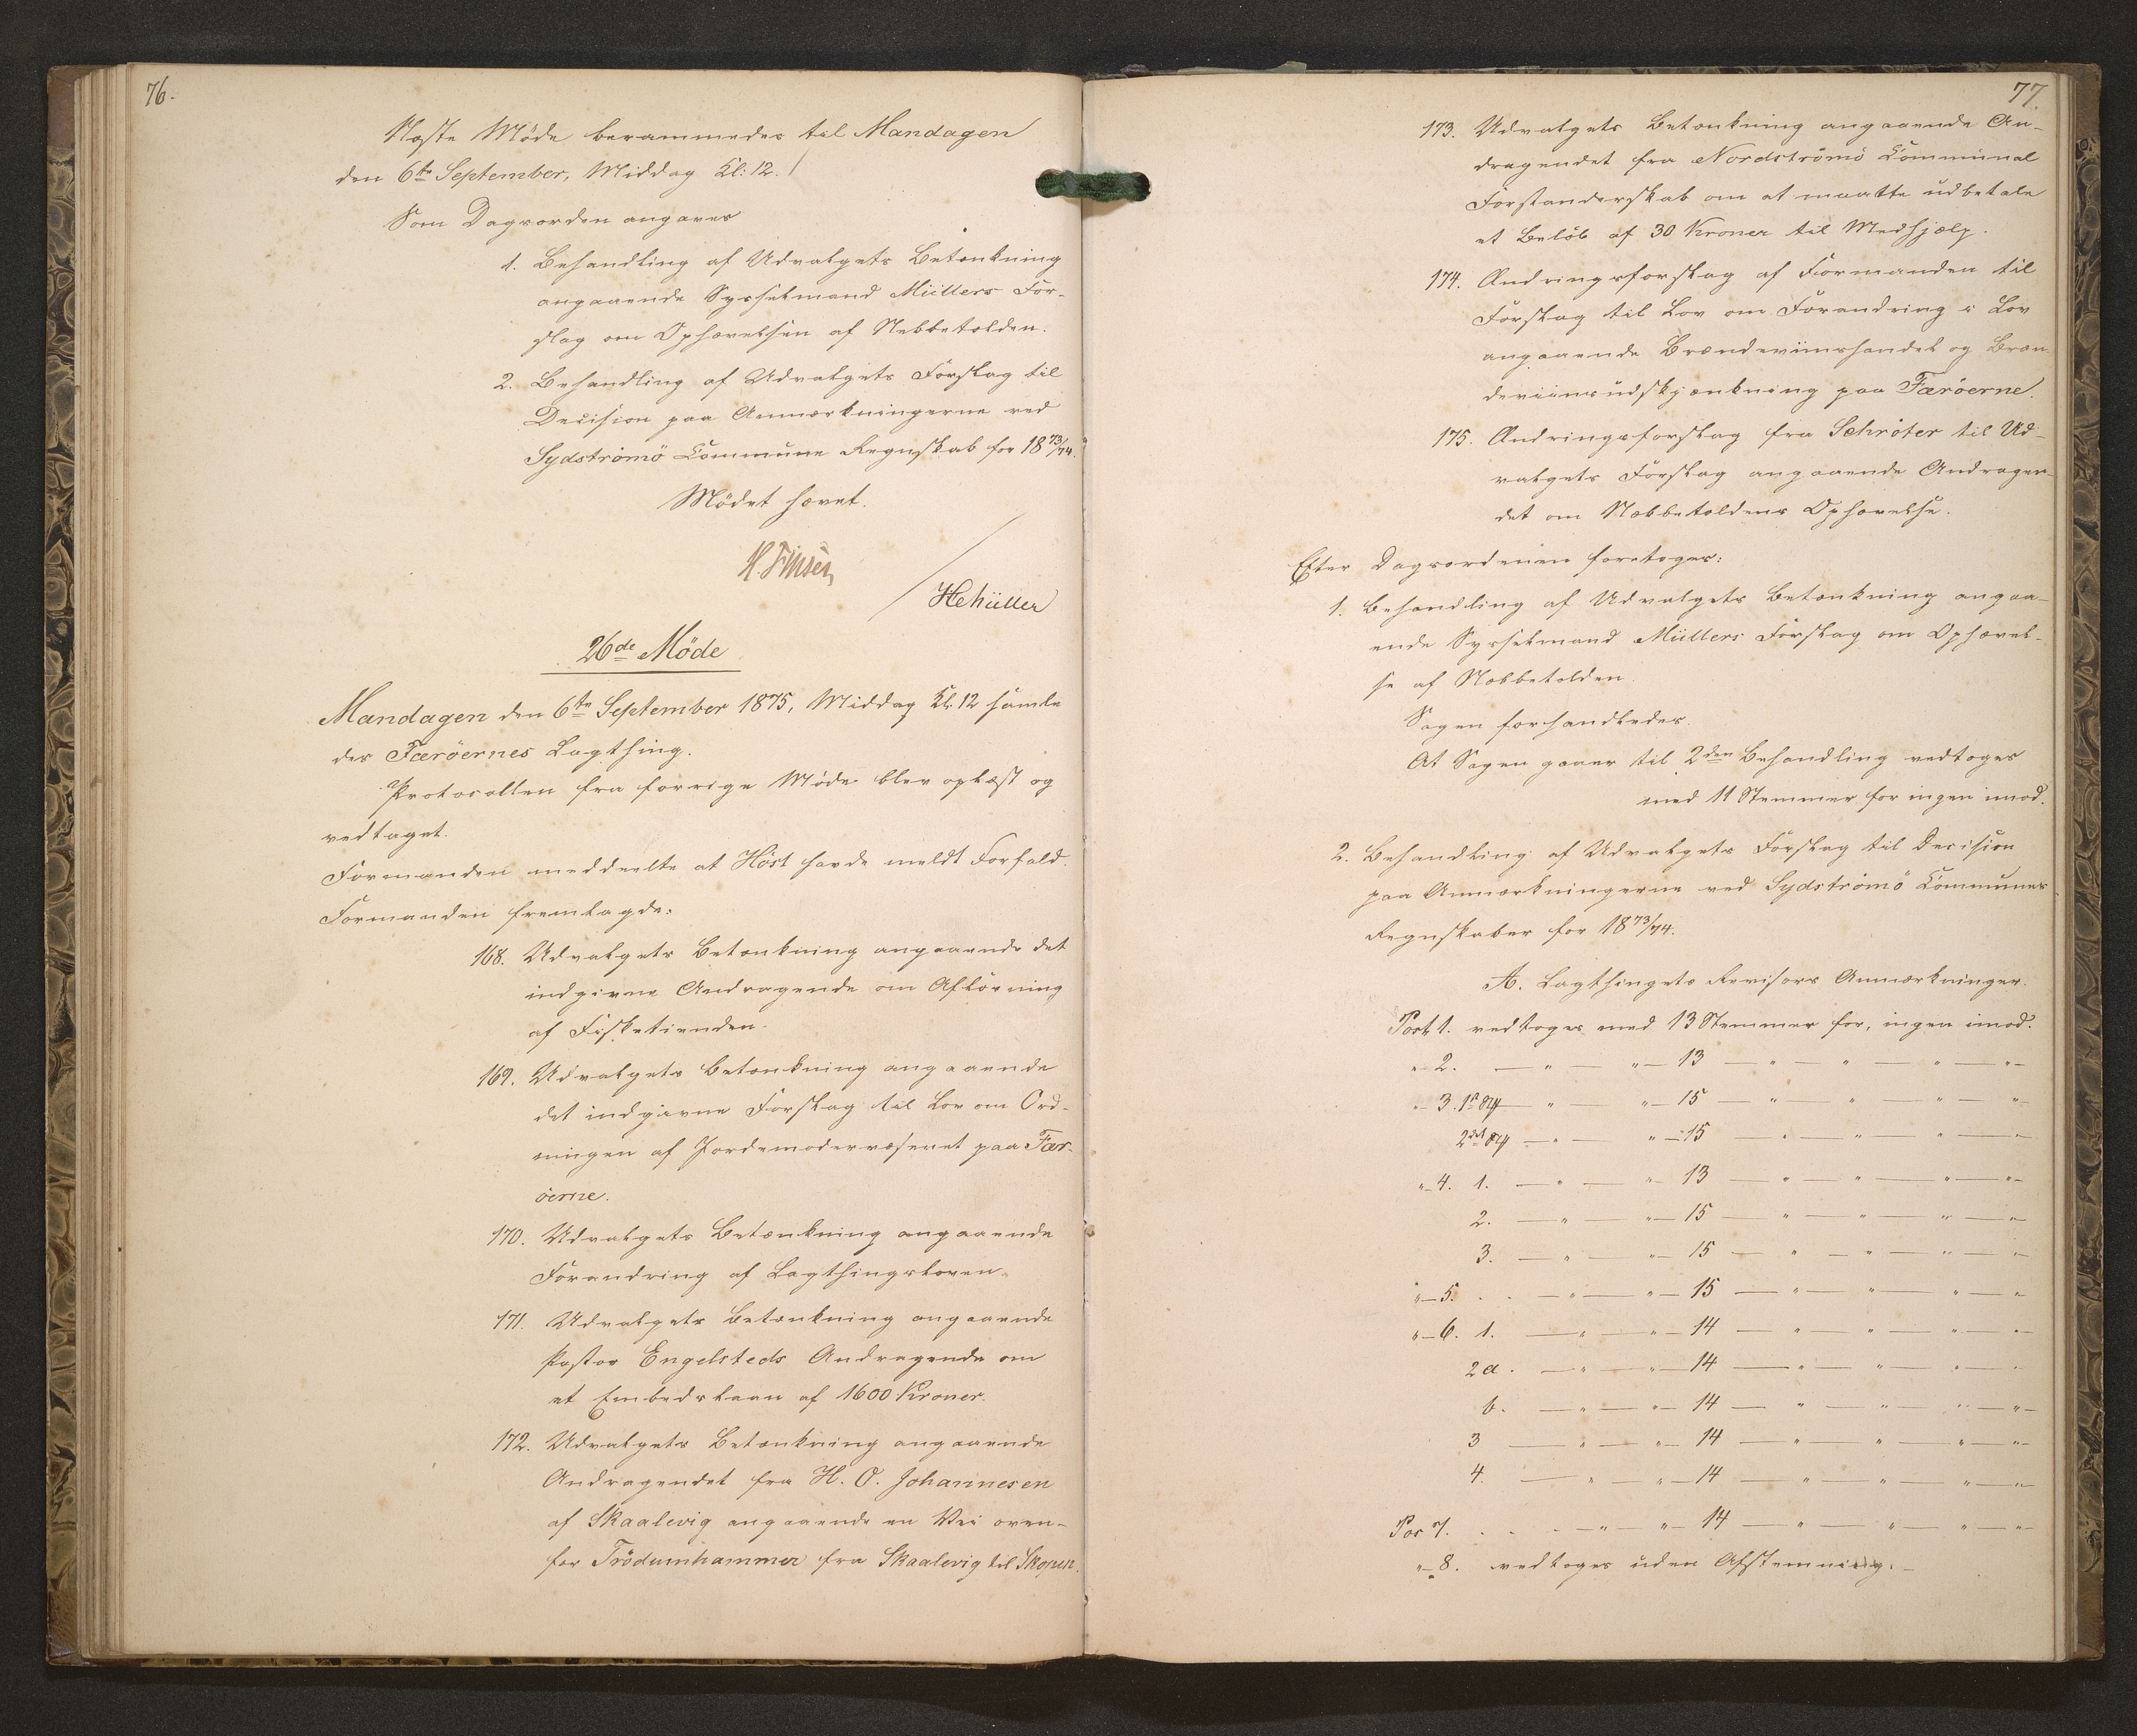 76.
Næste Möde berammedes til Mandagen
den 6te September, Middag Kl: 12.
Som Dagsorden angaves
1. Behandling af Udvalgets Betænkning
angaaende Sysselmand Müllers For-
slag om Ophævelsen af Nebbetolden.
2. Behandling af Udvalgets Forslag til
Decision paa Anmærkningerne ved
Sydströmö Commune Regnskab for 1873/74.
Mödet hævet.
H. Finsen
HCMüller
26de Möde
Mandagen den 6te September 1875, Middag Kl. 12 samle
des Færöernes Lagthing.
Protocollen fra forrige Möde blev oplæst og
vedtaget.
Formanden meddeelte at Höst havde meldt Forfald.
Formanden fremlagde:
168. Udvalgets Betænkning angaaende det
indgivne Andragende om Aflösning
af Fisketienden.
169. Udvalgets Betænkning angaaende
det indgivne Forslag til Lov om Ord-
ningen af Jordemodervæsenet paa Fær-
öerne.
170. Udvalgets Betænkning angaaende
Forandring af Lagthingsloven.
171. Udvalgets Betænkning angaaende
Pastor Engelsteds Andragende om
et Embedslaan af 1600 Kroner.
172. Udvalgets Betænkning angaaende
Andragendet fra H. O. Johannesen
af Skaalevig angaaende en Vei oven-
for Trödumhammer fra Skaalevig til Skopen.
77.
173. Udvalgets Betænkning angaaende An-
dragendet fra Nordströmö Communal
Forstanderskab om at maatte udbetale
et Belöb af 30 Kroner til Medhjælp.
174. Ændringsforslag af Formanden til
Forslag til Lov om Forandring i Lov
angaaende Brændeviinshandel og Bræn
deviinsudskjænkning paa Færöerne.
175. Ændringsforslag fra Schröter til Ud-
valgets Forslag angaaende Andragen
det om Næbbetoldens Ophævelse.
Efter Dagsordenen foretoges:
1. Behandling af Udvalgets Betænkning angaa-
ende Sysselmand Müllers Forslag om Ophævel-
se af Næbbetolden.
Sagen forhandledes.
At Sagen gaaer til 2den Behandling vedtoges
med 11 Stemmer for ingen imod.
2. Behandling af Udvalgets Forslag til Decision
paa Anmærkningerne ved Sydströmö Communes
Regnskaber for 1873/74.
A. Lagthingets Revisors Anmærkninger.
Post 1. vedtoges med 13 Stemmer for, ingen imod.
"- 2. — " — "— 13 — " — " — " — "-
"- 3. 1ste — " — "— 15 — " — " — " — "-
2det — " — "— 15 — " — " — " — "-
"- 4. 1. — " — "— 13 — " — " — " — "-
2. — " — "— 15 — " — " — " — "-
3. — " — "— 15 — " — " — " — "-
"- 5. . . — " — "— 15 — " — " — " — "-
"- 6. 1. — " — "— 14 — " — " — " — "-
2a. — " — "— 14 — " — " — " — "-
b. — " — "— 14 — " — " — " — "-
3 — " — "— 14 — " — " — " — "-
4. — " — "— 14 — " — " — " — "-
Pos 7. . . . — " — "— 14 — " — " — " — "-
"- 8. vedtoges uden Afstemning.